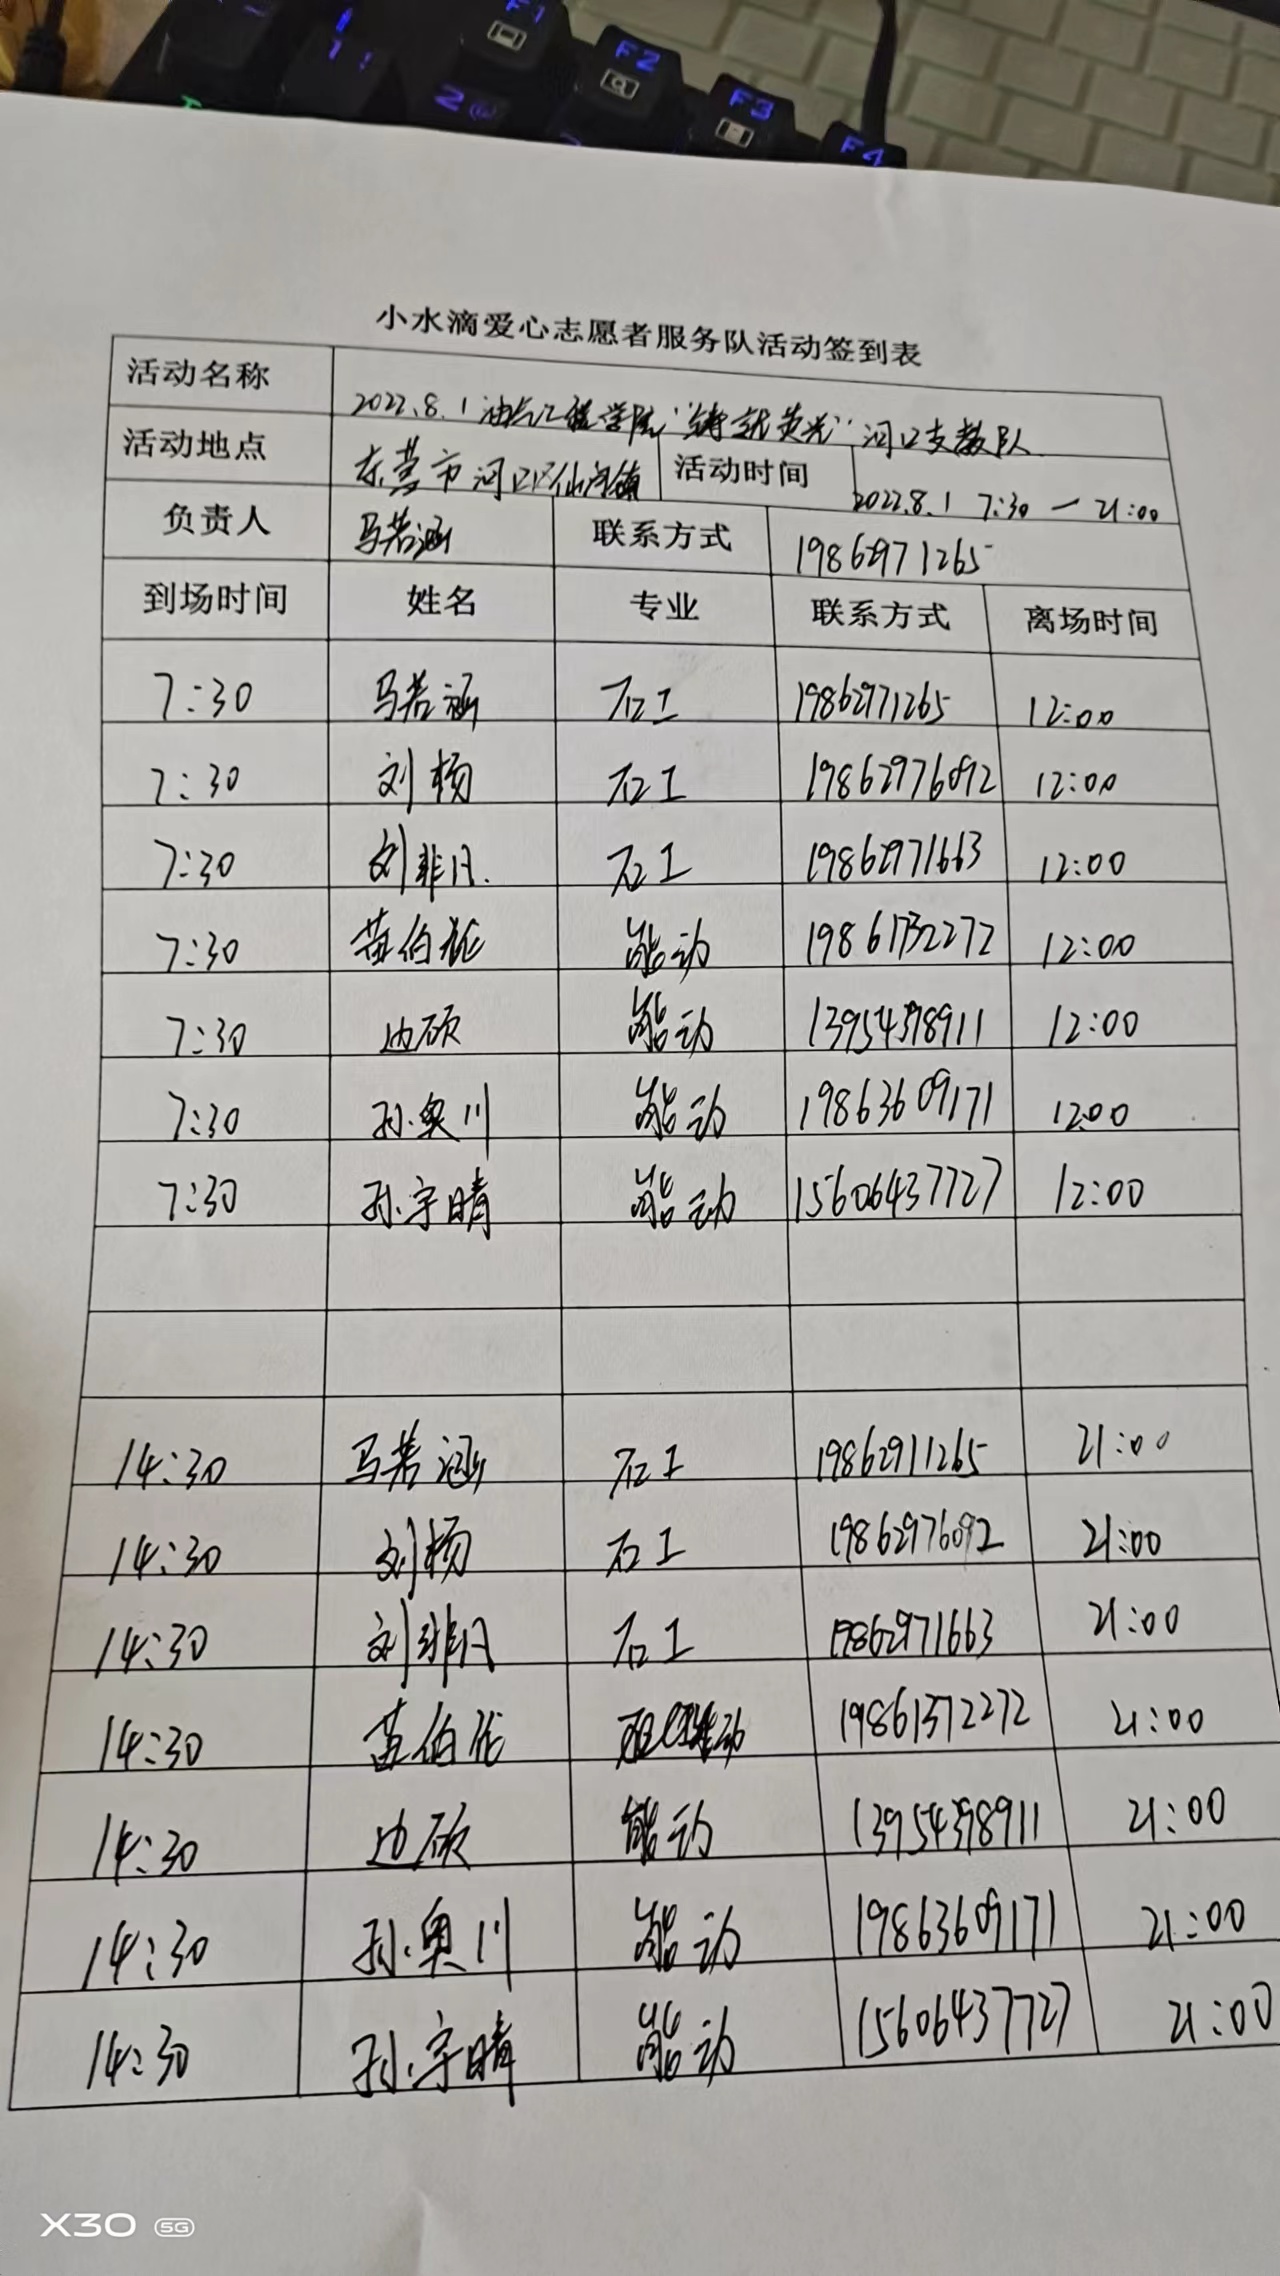 F1
F2
2
F3
F4
小水滴爱心志愿者服务队活动签到表
活动名称 2022.8.1 油气工程学院“铸就荧光”河口支教队
活动地点 东营市河口区仙河镇 活动时间 2022.8.1 7:30 — 21:00
负责人 马若涵 联系方式 19862971265
到场时间 姓名 专业 联系方式 离场时间
7:30 马若涵 石工 19862971265 12:00
7:30 刘杨 石工 19862976092 12:00
7:30 刘非凡. 石工 19862971663 12:00
7:30 苗伯 能动 19861732272 12:00
7:30 边硕 能动 13954398911 12:00
7:30 孙奥川 能动 19863609171 12:00
7:30 孙宇晴 能动 15606437727 12:00
14:30 马若涵 石工 19862911265 21:00
14:30 刘杨 石工 19862976092 21:00
14:30 刘非凡 石工 19862971663 21:00
14:30 苗伯 动 19861372272 21:00
14:30 边硕 能动 13954398911 21:00
14:30 孙奥川 能动 19863609171 21:00
14:30 孙宇晴 能动 15606437727 21:00
X30 5G